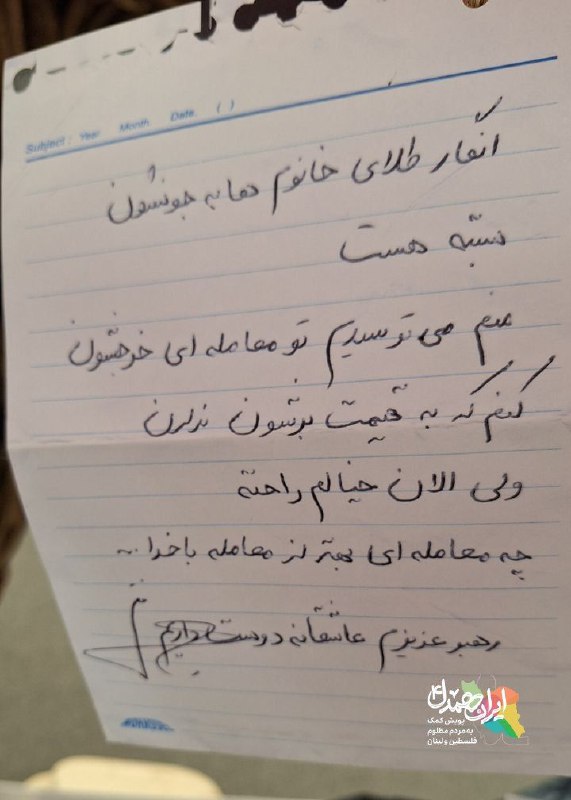 Subject: Year Month Date ( )
انگار طلای خانوم ها به جونشون
بسته هست
منم می ترسیدم تو معامله ای خرجشون
کنم که به قیمت برشون ندارن
ولی الان خیالم راحته
چه معامله ای بهتر از معامله با خدا ..
رهبر عزیزم عاشقانه دوست داریم
ایران همدل
پویش کمک
به مردم مظلوم
فلسطین و لبنان